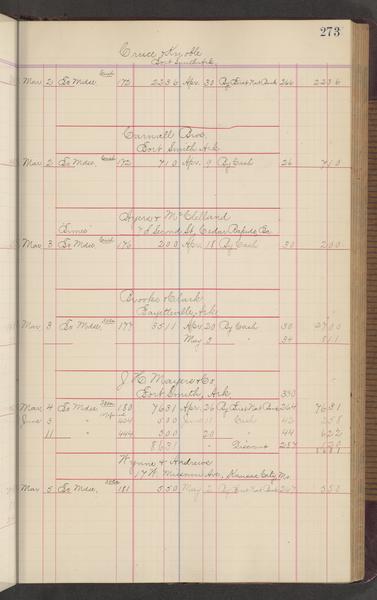 273
Cruce & Knoble
Fort Smith Ark
Mar 2 To Mdse 172 2236 Apr 30 By First Nat Bank 266 2236
Carnall Bros.
Fort Smith Ark
Mar 2 To Mdse 172 710 Apr 9 By Cash 26 710
Ayers & McClelland
"Times" 2d St, Cedar Rapids
Mar 3 To Mdse 176 200 Apr 18 By Cash 30 200
Brooks & Clark
Fayetteville, Ark
Mar 3 To Mdse 177 3511 Apr 20 By Cash 30 2700
May 2 " 34 811
J H Mayers & Co
Fort Smith, Ark 330
Mar 4 To Mdse 180 7631 Apr 26 By First Nat Bank 264 7631
June 3 " 434 500 June 11 " Cash 43 258
11 " 444 500 20 " 44 622
8631 Discount 287 120
8631
Wynne & Andrews
17 W Missouri Ave, Kansas City Mo
Mar 5 To Mdse 181 550 May 2 By First Nat Bank 267 550